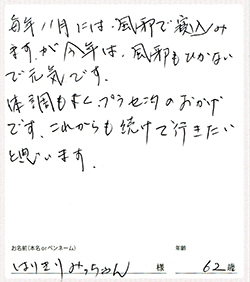 毎年11月には、風邪で寝込み
ますが今年は、風邪もひかない
で元気です。
体調もよく、プラセンタのおかげ
です。これからも続けて行きたい
と思います。
お名前(本名orペンネーム)
年齢
はりきりみっちゃん 様
62歳